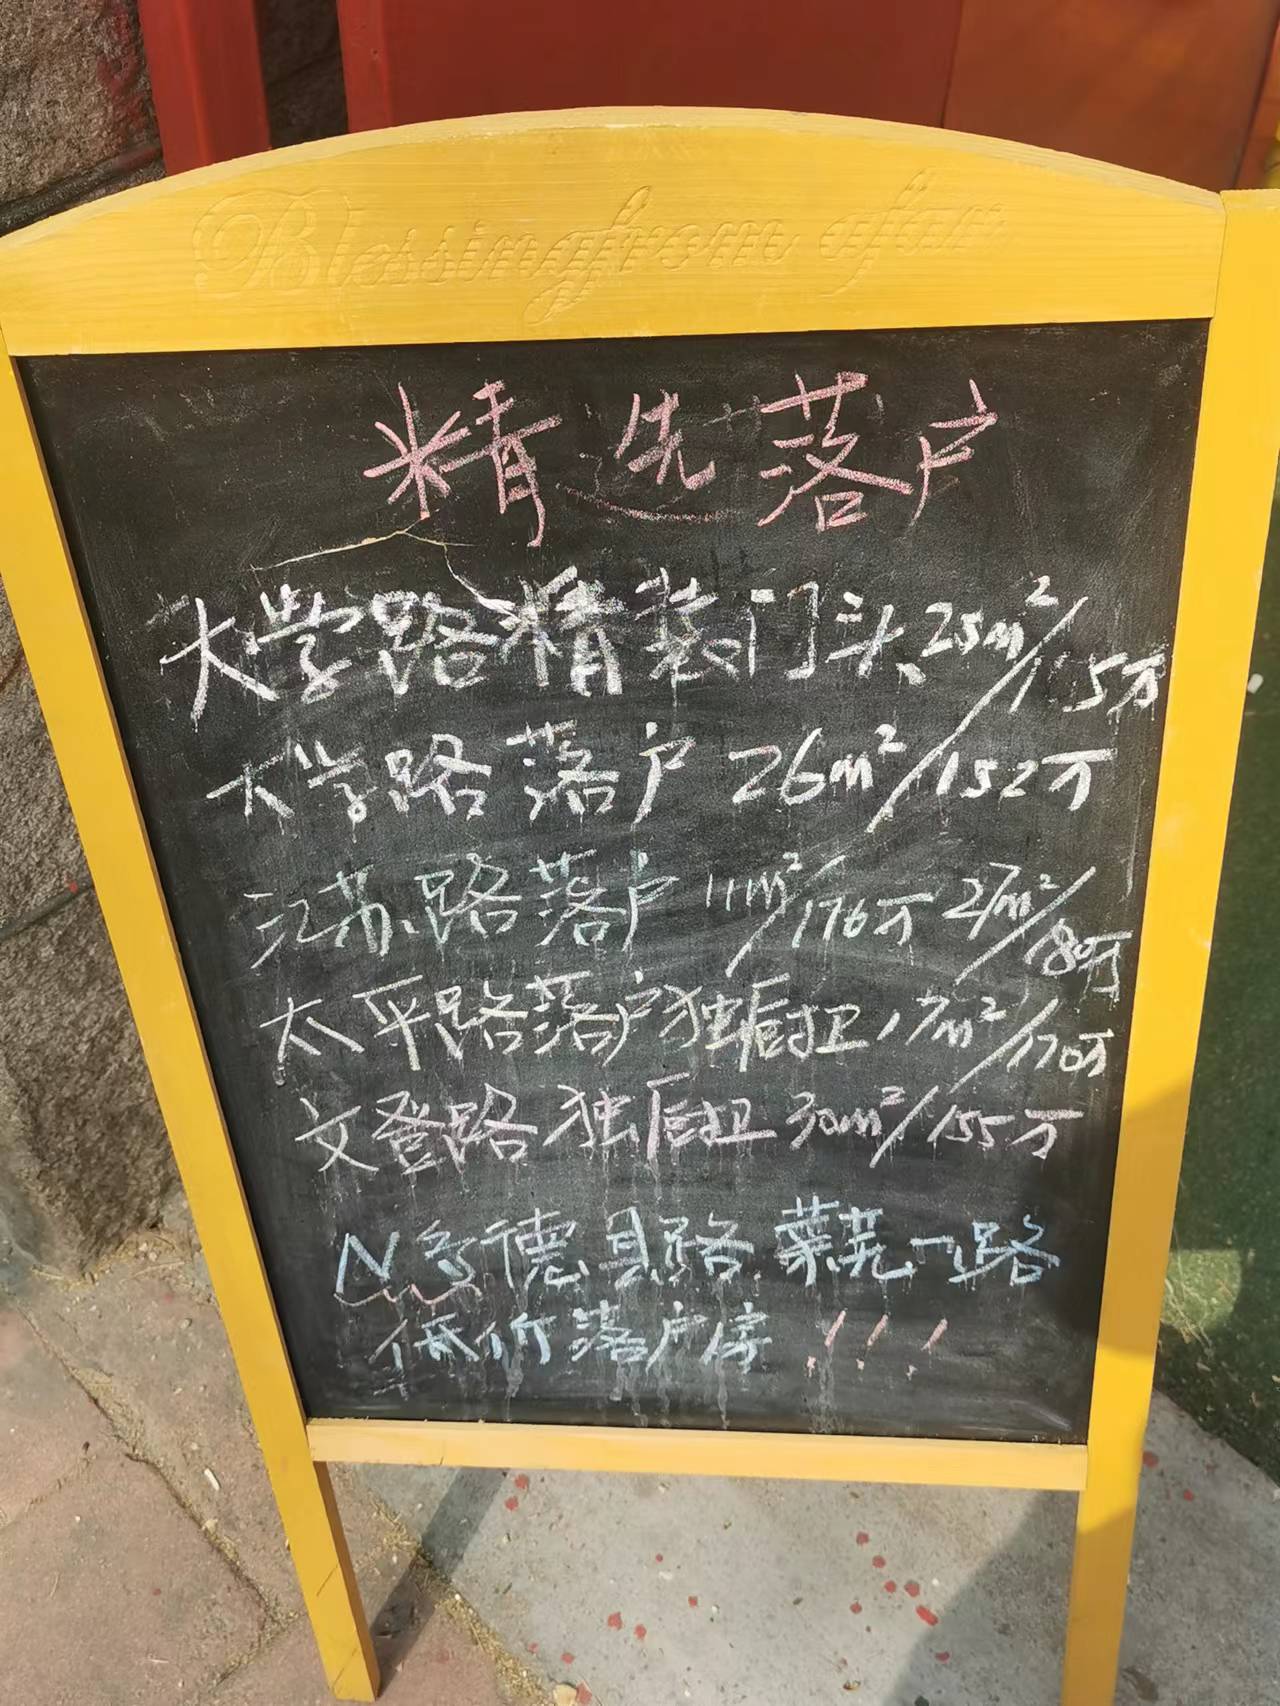 Blessingfrom afar
精选落户
大学路精装门头 25m²/115万
大学路落户 26m²/152万
江苏路落户 11m²/176万 27m²/180万
太平路落户独厨卫 17m²/170万
文登路 独厨卫 30m²/155万
德县路 莱芜一路
低价落户房!!!